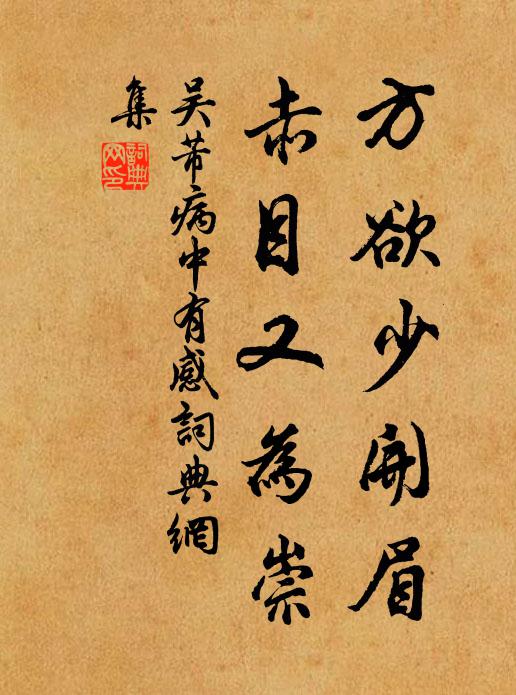 方欲少開眉
赤目又為祟
吳芾病中有感詞典網
集
詞典
网印